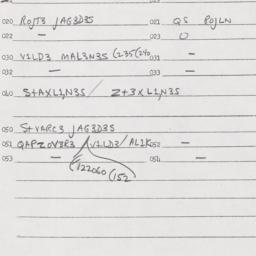 020 ROJT3 JAG3D3S 021 QS POJLN
022 — 023 O
030 V1LD3 MAL3N3S (235(240 031 —
032 — 033 —
040 S+AXL1,N3S / Z+3XL1,N3S
050 S+VARC3 JAG3D3S
051 QAPZOV3R3 / V1LD3/AL1K 052 —
053 — 054 —
(122060 (152